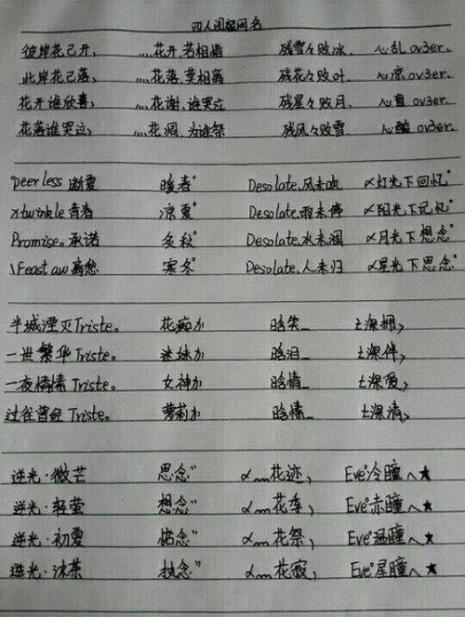 四人闺蜜网名
彼岸花已开、 ...花开.若相惜 残雪々败冰. 心乱 ov3er.
此岸花已落、 ...花落.莫相离 残花々败叶. 心凉 ov3er.
花开谁欣喜、 ...花谢.谁哭泣 残星々败月. ov3er.
花落谁哭泣、 ...花凋.为谁祭 残风々败雪 心酸 ov3er.
"peerless 断夏 暖春° Desolate.风未吹 〆灯光下回忆°
×twinkle 青春 凉夏° Desolate.雨未停 〆阳光下记忆°
Promise。承诺 冬秋° Desolate.水未凋 〆月光下想念°
\Feast aw 离愁 寒冬° Desolate.人未归 〆星光下思念°
半城湮灭Triste。 花痴か 晗笑_ 土深拥ゝ
一世繁华Triste。 迷妹か 晗泪_ 土深伴ゝ
一夜情愫Triste。 女神か 晗情_ 土深爱ゝ
Triste。 萝莉か 晗愫_ 土深清ゝ
逆光·微芒 思念" 花迹, Eve°冷瞳へ★
逆光·轻萤 想念" 花季, Eve°赤瞳へ★
逆光·初夏 惦念" 花祭, Eve°温瞳へ★
逆光·沫茶 执念" 花寂, Eve°星瞳へ★